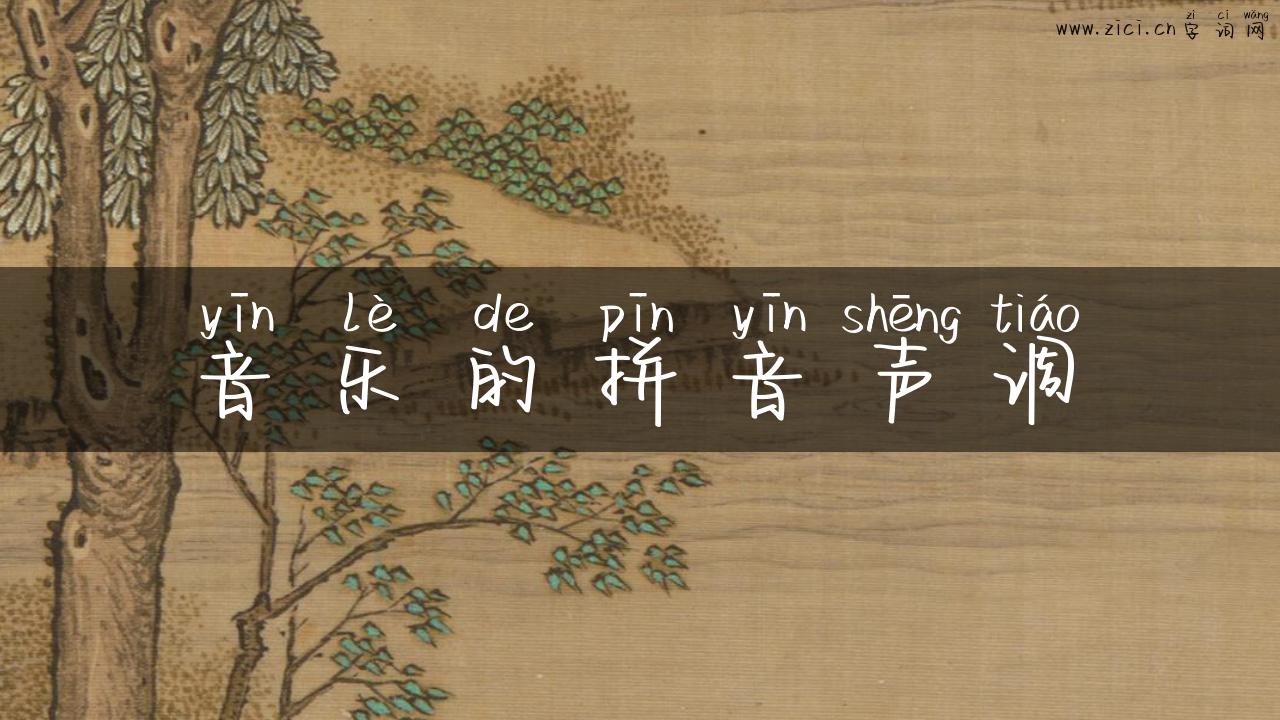 zì cí wǎng
www.zici.cn 字词网
yīn lè de pīn yīn shēng tiáo
音乐的拼音声调